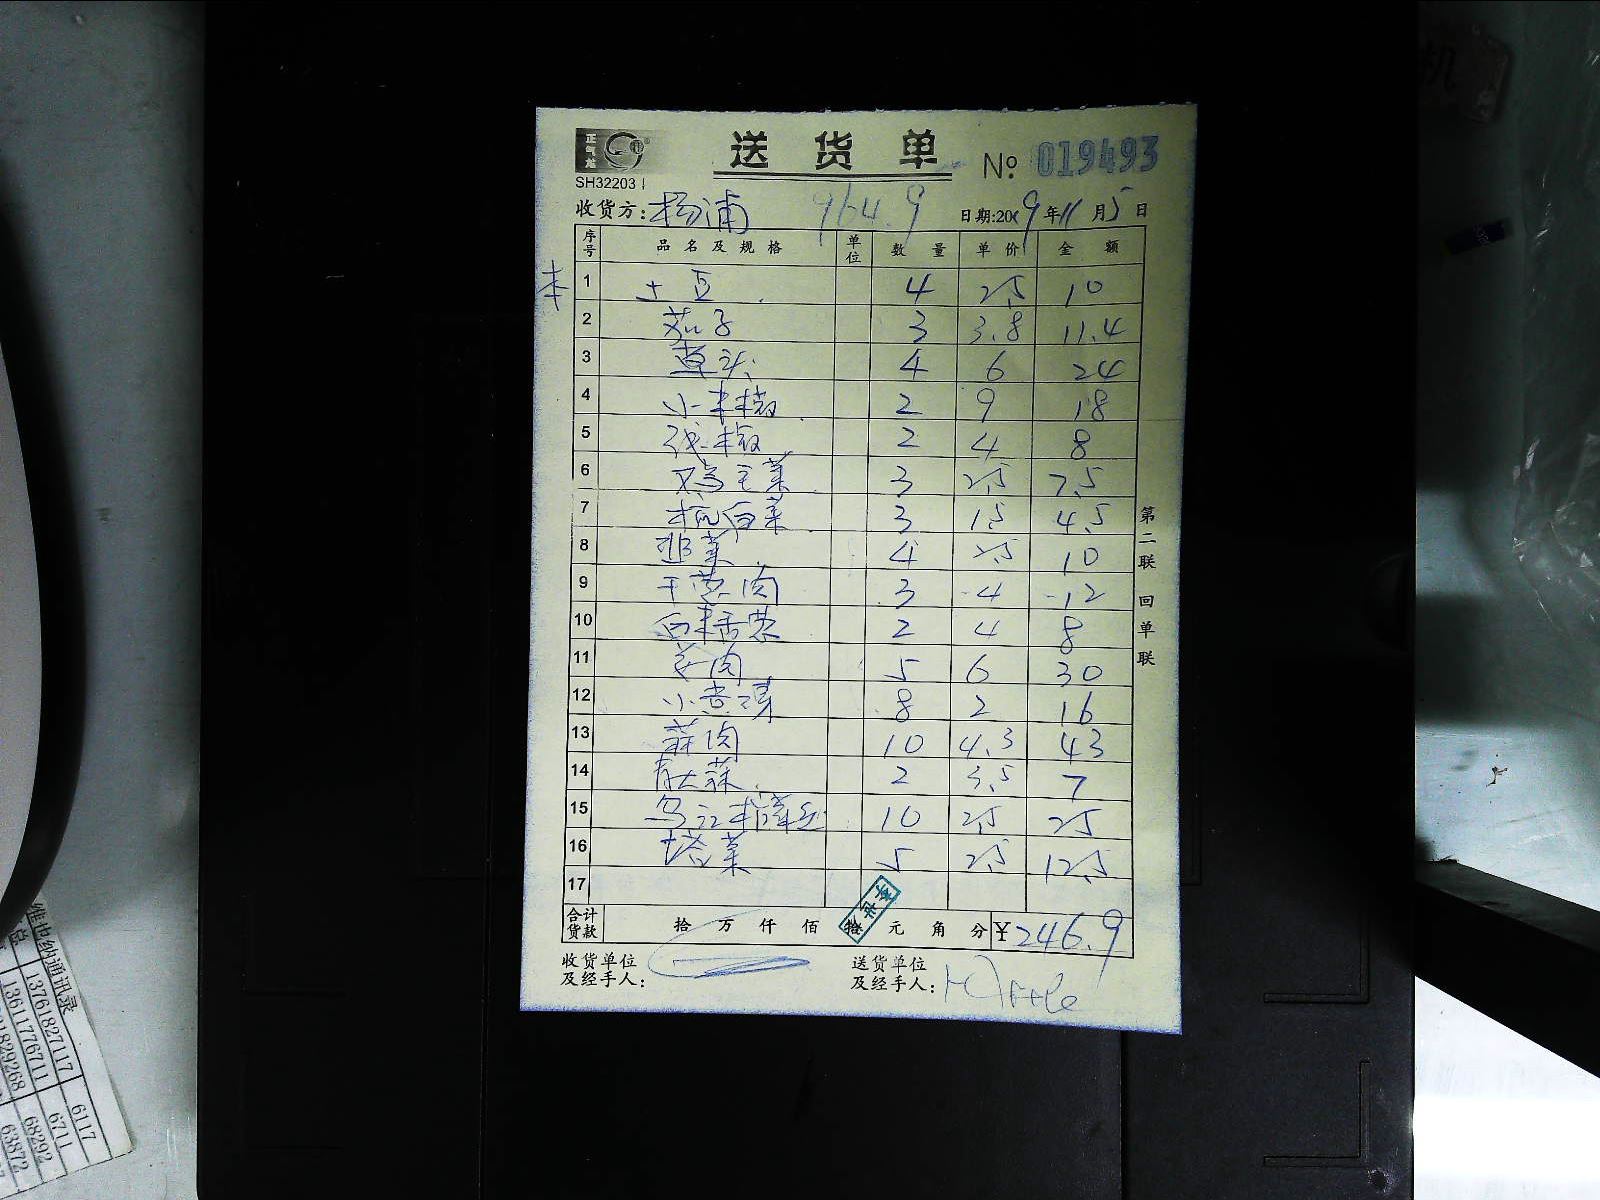 正气龙
送货单
№ 019493
SH32203
收货方：杨浦 964.9 日期:2019年11月5日
序号 品名及规格 单位 数量 单价 金额
本
1 土豆 4 2.5 10
2 茄子 3 3.8 11.4
3 4 6 24
4 小米椒 2 9 18
5 线椒 2 4 8
6 鸡毛菜 3 2.5 7.5
7 杭白菜 3 1.5 4.5
8 韭菜 4 2.5 10
9 3 4 12
10 白米 2 4 8
11 肉 5 6 30
12 小 8 2 16
13 蒜肉 10 4.3 43
14 2 3.5 7
15 乌江榨菜 10 2.5 25
16 塔菜 5 2.5 12.5
17
合计货款 拾 万 仟 佰 拾 元 角 分 ¥246.9
李世
收货单位及经手人：
送货单位及经手人：
第二联 回单联
维也纳通讯录
总
13761827117 6117
13611776711 6711
1829268 68292
63872